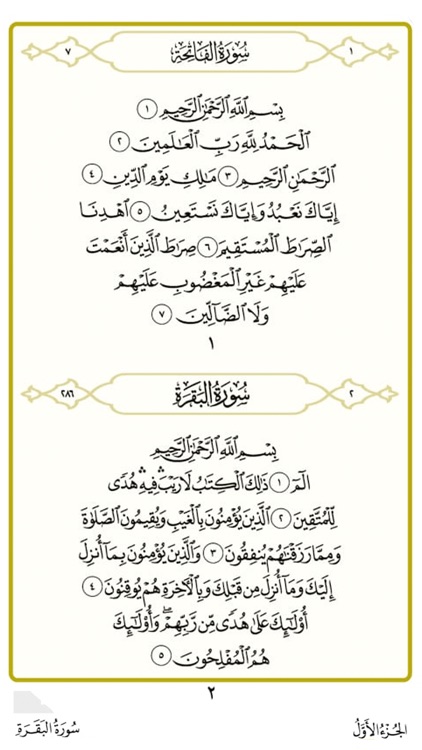 ١ سُورَةُ الْفَاتِحَةِ ٧
بِسْمِ اللَّهِ الرَّحْمَٰنِ الرَّحِيمِ ١
الْحَمْدُ لِلَّهِ رَبِّ الْعَالَمِينَ ٢
الرَّحْمَٰنِ الرَّحِيمِ ٣ مَالِكِ يَوْمِ الدِّينِ ٤
إِيَّاكَ نَعْبُدُ وَإِيَّاكَ نَسْتَعِينُ ٥ اهْدِنَا
الصِّرَاطَ الْمُسْتَقِيمَ ٦ صِرَاطَ الَّذِينَ أَنْعَمْتَ
عَلَيْهِمْ غَيْرِ الْمَغْضُوبِ عَلَيْهِمْ
وَلَا الضَّالِّينَ ٧
١
٢ سُورَةُ الْبَقَرَةِ ٢٨٦
بِسْمِ اللَّهِ الرَّحْمَٰنِ الرَّحِيمِ
الٓمٓ ١ ذَٰلِكَ الْكِتَابُ لَا رَيْبَ ۛ فِيهِ ۛ هُدًى
لِّلْمُتَّقِينَ ٢ الَّذِينَ يُؤْمِنُونَ بِالْغَيْبِ وَيُقِيمُونَ الصَّلَاةَ
وَمِمَّا رَزَقْنَاهُمْ يُنفِقُونَ ٣ وَالَّذِينَ يُؤْمِنُونَ بِمَا أُنزِلَ
إِلَيْكَ وَمَا أُنزِلَ مِن قَبْلِكَ وَبِالْآخِرَةِ هُمْ يُوقِنُونَ ٤
أُولَٰئِكَ عَلَىٰ هُدًى مِّن رَّبِّهِمْ ۖ وَأُولَٰئِكَ
هُمُ الْمُفْلِحُونَ ٥
٢
الجُزْءُ الأَوَّلُ سُورَةُ الْبَقَرَةِ